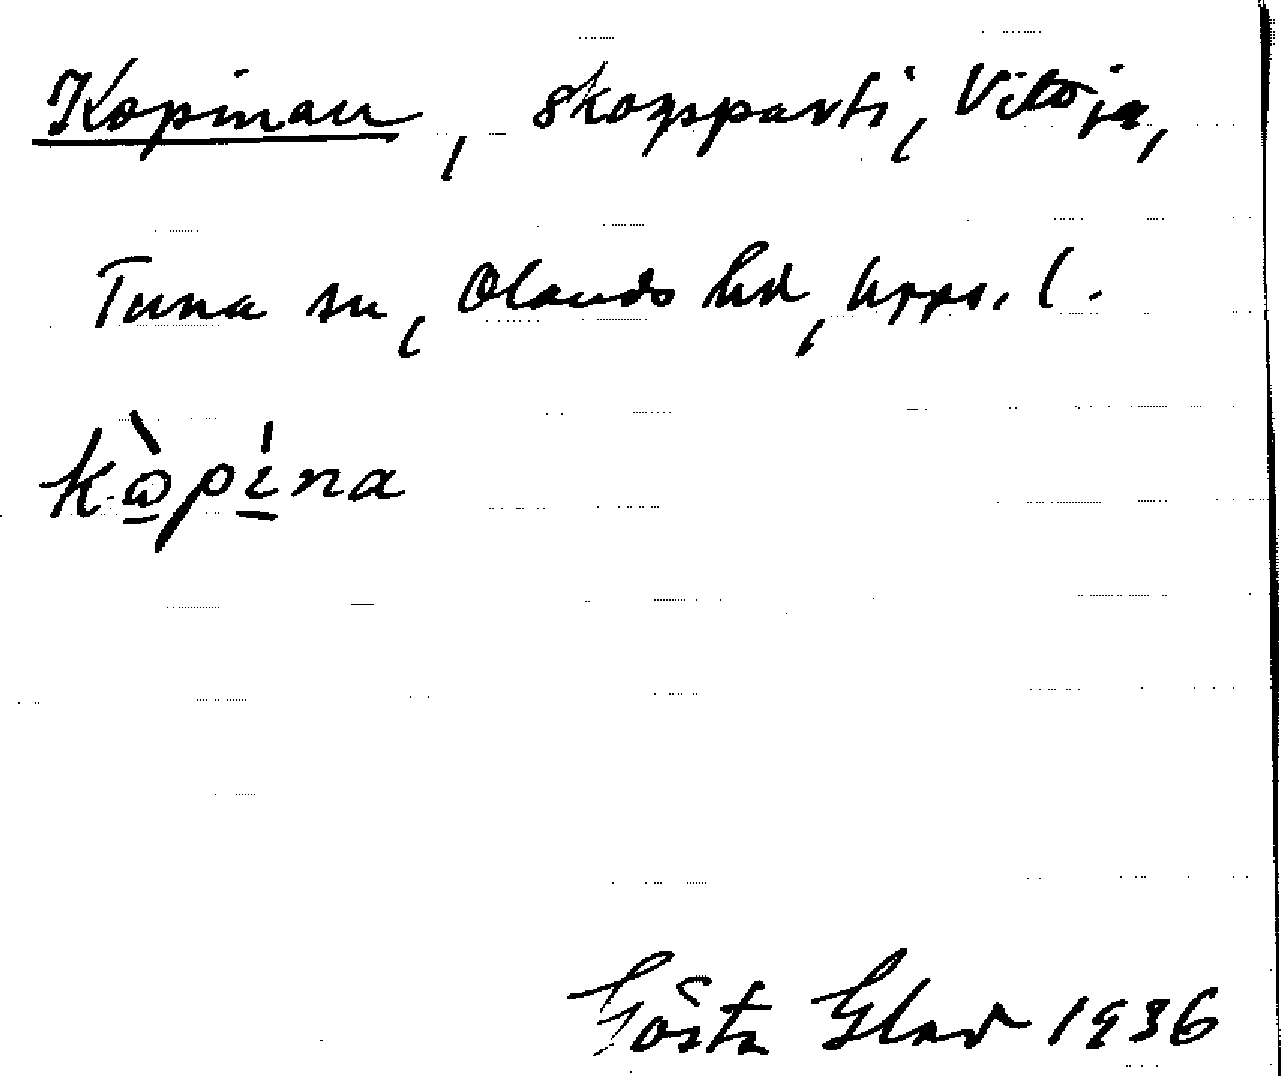 Kopinan, skogsparti, Vittja,
Tuna sn, Olands hd, Upps. l.
kòpína
Gösta Glad 1936